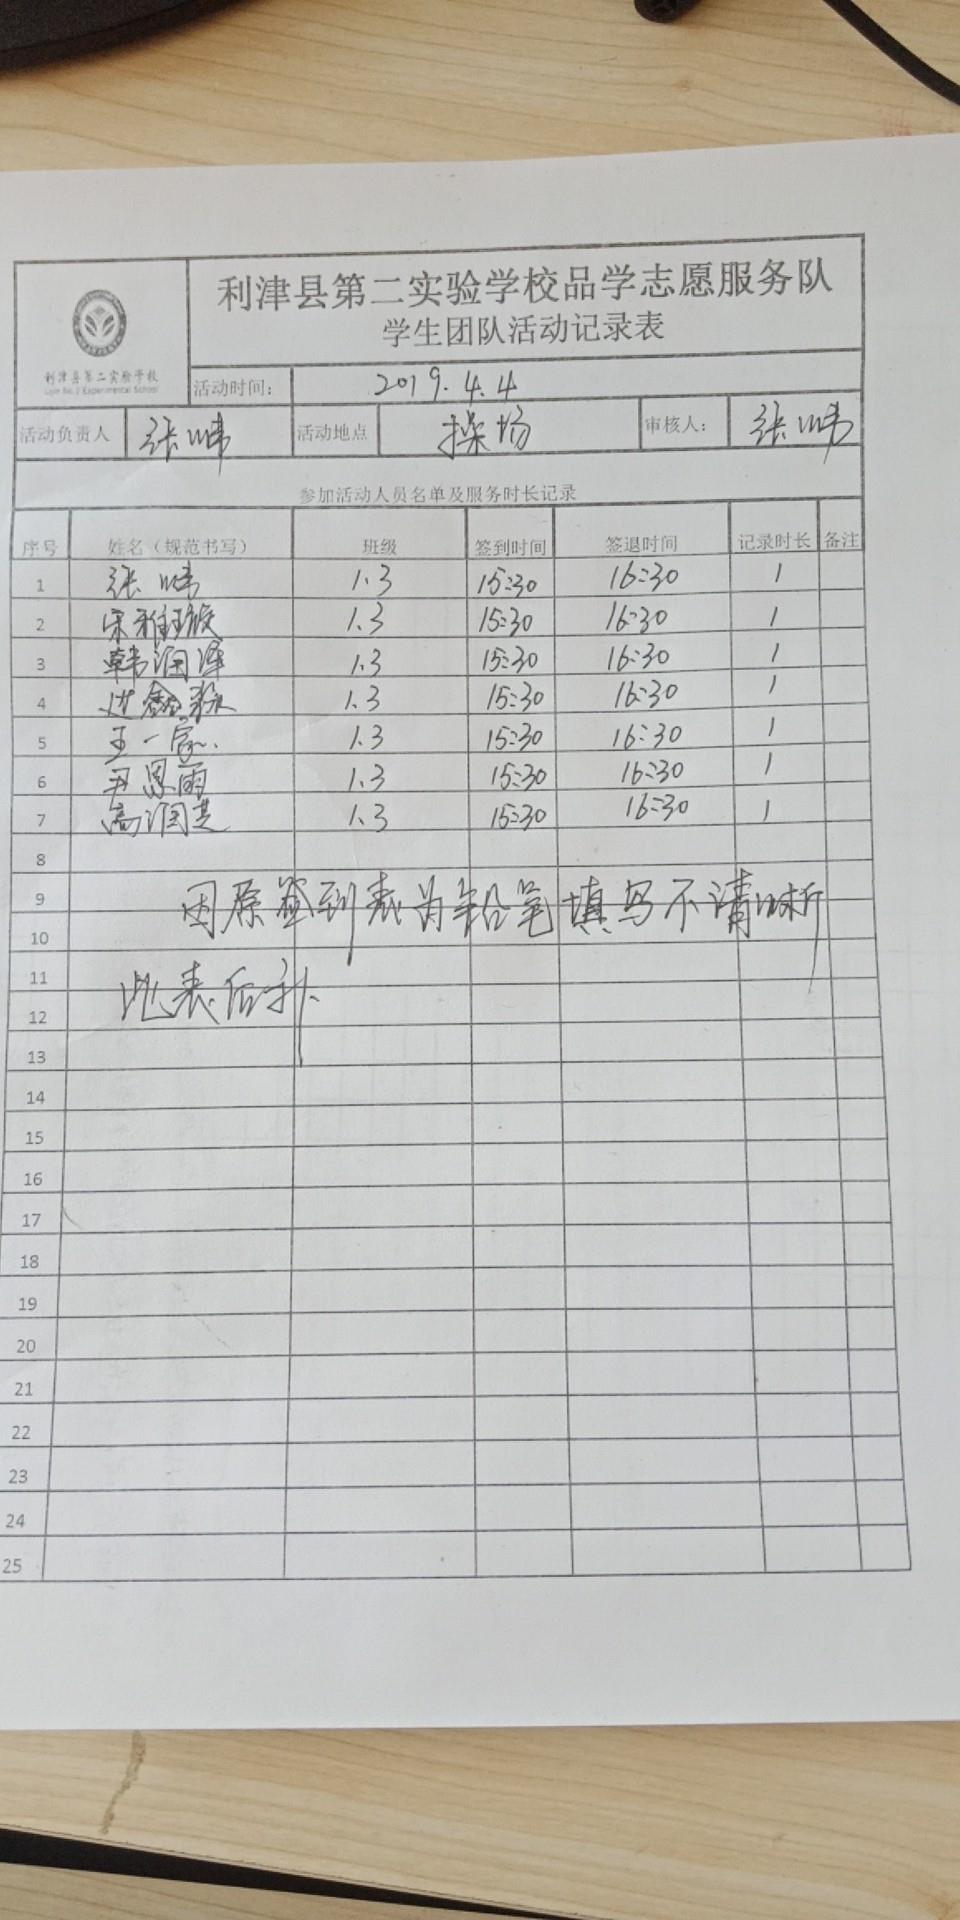 利津县第二实验学校品学志愿服务队
学生团队活动记录表
利津县第二实验学校
Lijin No.2 Experimental School
活动时间： 2019.4.4
活动负责人 张 活动地点 操场 审核人： 张
参加活动人员名单及服务时长记录
序号 姓名（规范书写） 班级 签到时间 签退时间 记录时长 备注
1 张 1.3 15:30 16:30 1
2 宋雅 1.3 15:30 16:30 1
3 韩润泽 1.3 15:30 16:30 1
4 鑫 1.3 15:30 16:30 1
5 王一 1.3 15:30 16:30 1
6 尹恩雨 1.3 15:30 16:30 1
7 高润芝 1.3 15:30 16:30 1
8
9 因原签到表为铅笔填写不清晰
10
11
此表后补
12
13
14
15
16
17
18
19
20
21
22
23
24
25